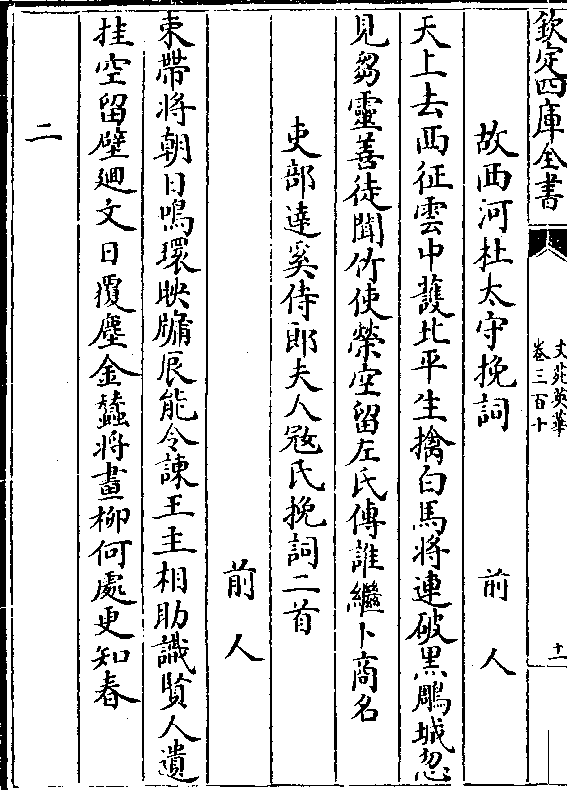 欽定四庫全書
文苑英華
卷三百十
十一
故西河杜太守挽詞 前人
天上去西征雲中護北平生擒白馬將連破黑鵰城忽
見芻靈善徒聞竹使榮空留左氏傳誰繼卜商名
吏部達奚侍郎夫人冦氏挽詞二首
前人
束帶將朝日鳴環映牖辰能令諫王主相助識賢人遺
挂空留壁迴文日覆塵金蠶將畫柳何處更知春
二